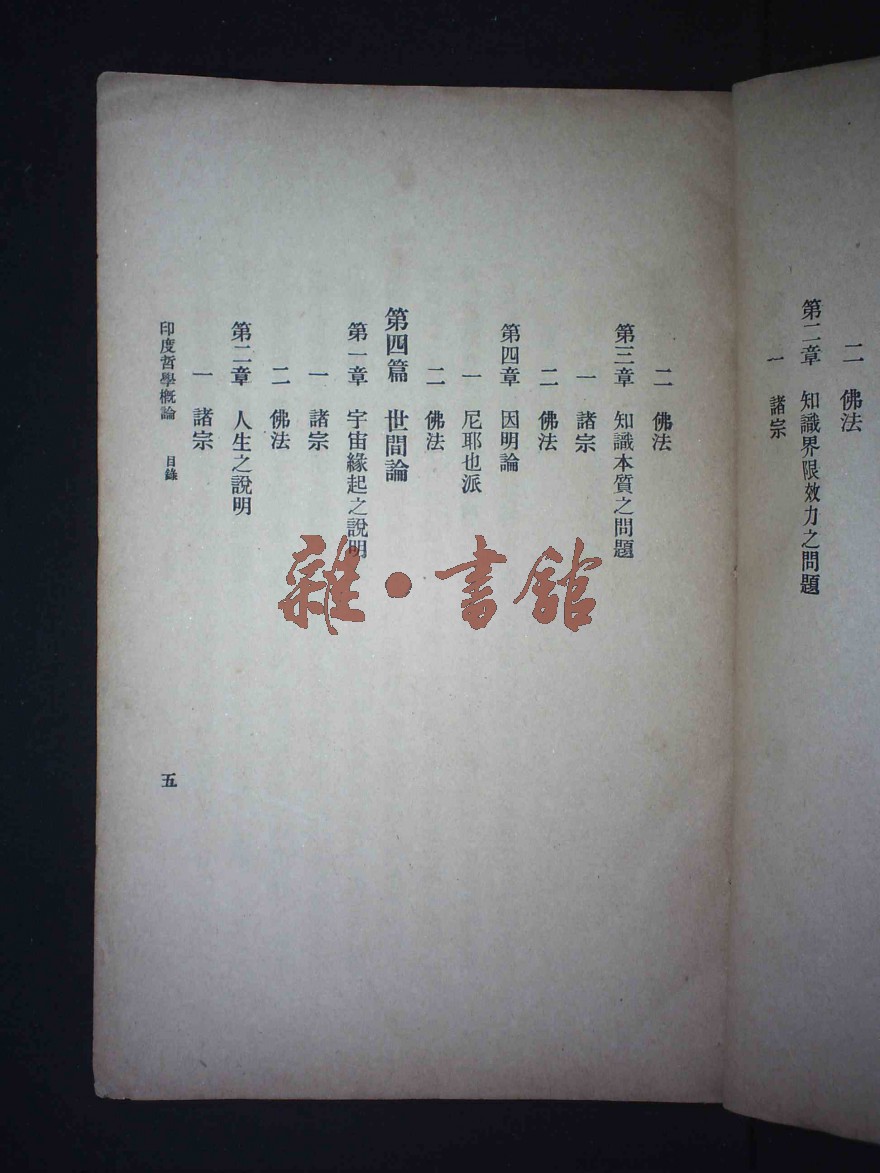 二　佛法
第二章　知識界限效力之問題
一　諸宗
二　佛法
第三章　知識本質之問題
一　諸宗
二　佛法
第四章　因明論
一　尼耶也派
二　佛法
第四篇　世間論
第一章　宇宙緣起之說明
一　諸宗
二　佛法
第二章　人生之說明
一　諸宗
印度哲學概論　目錄
五
雜·書館